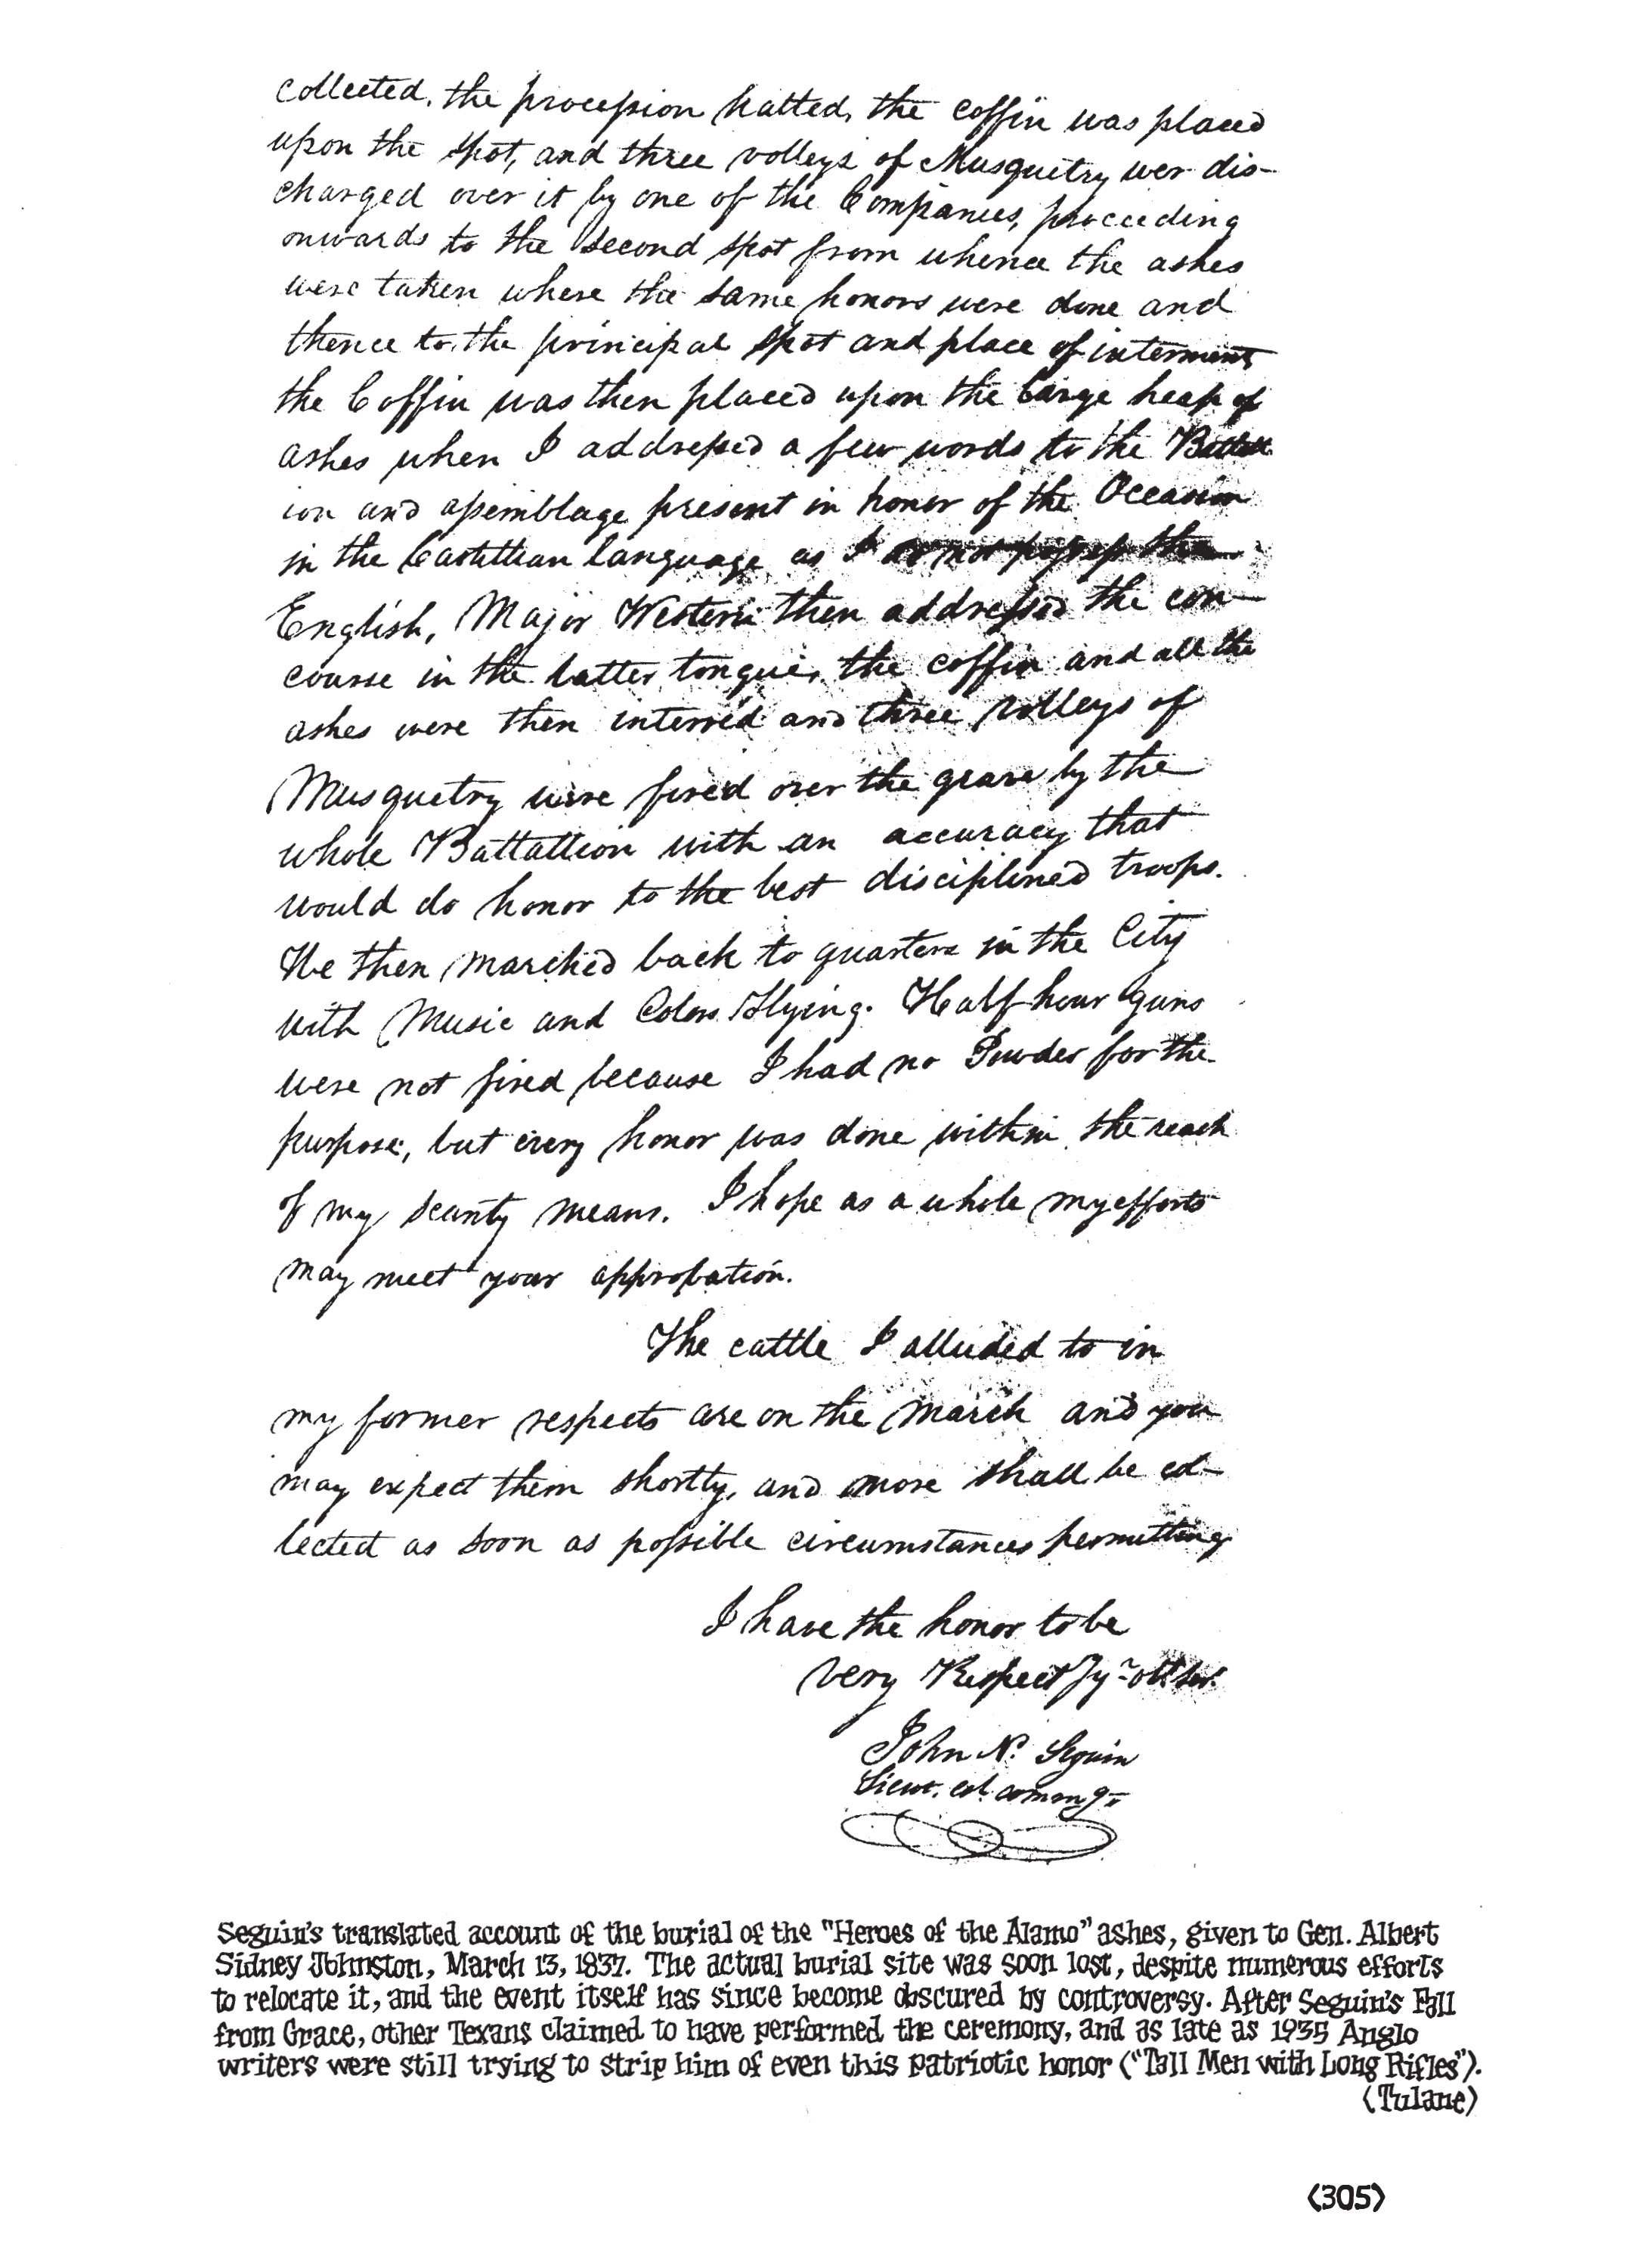 collected, the procession halted, the coffin was placed
upon the spot, and three volleys of Musquetry wer dis-
charged over it by one of the Companies, proceeding
onwards to the second spot from whence the ashes
were taken where the same honors were done and
thence to the principal spot and place of interment,
the Coffin was then placed upon the large heap of
ashes when I addressed a few words to the Battal
ion and assemblage present in honor of the Occasion
in the Castillian language as I do not possess the
English, Major Western then addressed the con-
course in the latter tongue, the coffin and all the
ashes were then interred and three volleys of
Musquetry were fired over the grave by the
whole Battallion with an accuracy that
would do honor to the best disciplined troops.
We then marched back to quarters in the City
with Music and Colors Flying. Half hour guns
were not fired because I had no Powder for the
purpose, but every honor was done within the reach
of my scanty means. I hope as a whole my efforts
may meet your approbation.
The cattle I alluded to in
my former respects are on the march and you
may expect them shortly, and more shall be col-
lected as soon as possible circumstances permitting
I have the honor to be
very Respectfy
John N. Seguin
Lieut. col. commg
Seguin's translated account of the burial of the "Heroes of the Alamo" ashes, given to Gen. Albert
Sidney Johnston, March 13, 1837. The actual burial site was soon lost, despite numerous efforts
to relocate it, and the event itself has since become obscured by controversy. After Seguin's Fall
from Grace, other Texans claimed to have performed the ceremony, and as late as 1935 Anglo
writers were still trying to strip him of even this patriotic honor ("Tall Men with Long Rifles").
(Tulane)
<305>